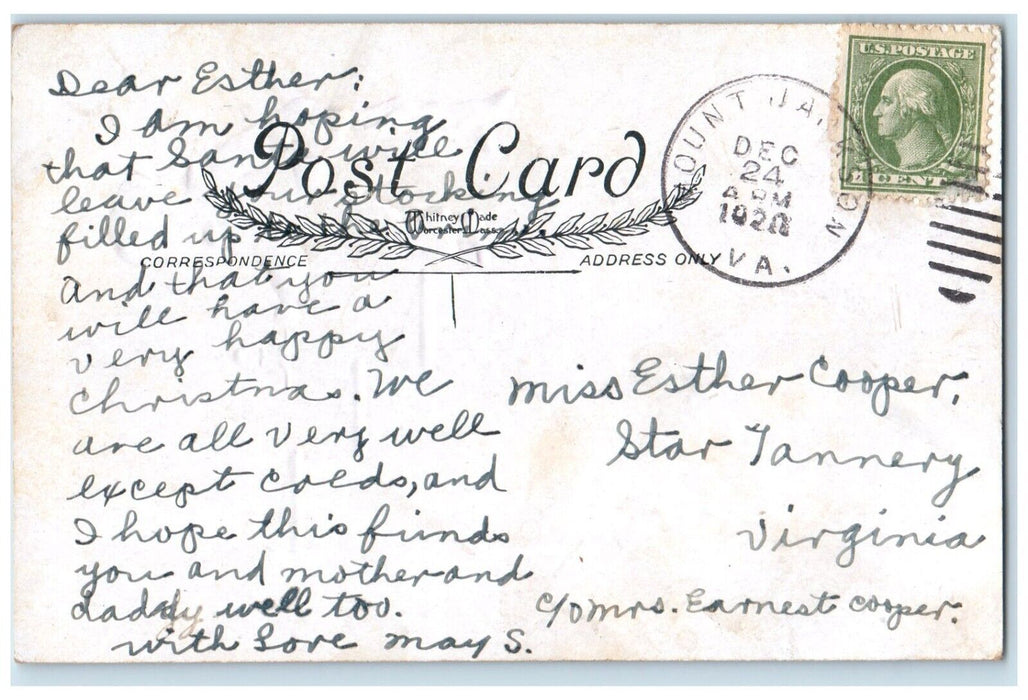 Dear Esther:
I am hoping
that Santa will
leave your stocking
filled up to the
and that you
will have a
very happy
Christmas. We
are all very well
except colds, and
I hope this finds
you and mother and
daddy well too.
with Love May S.
Post Card
Whitney Made
Worcester Mass
CORRESPONDENCE
ADDRESS ONLY
MOUNT JACKSON
DEC
24
M
192
VA.
U.S. POSTAGE
1 CENT 1
Miss Esther Cooper,
Star Tannery
Virginia
c/o Mrs. Earnest Cooper.